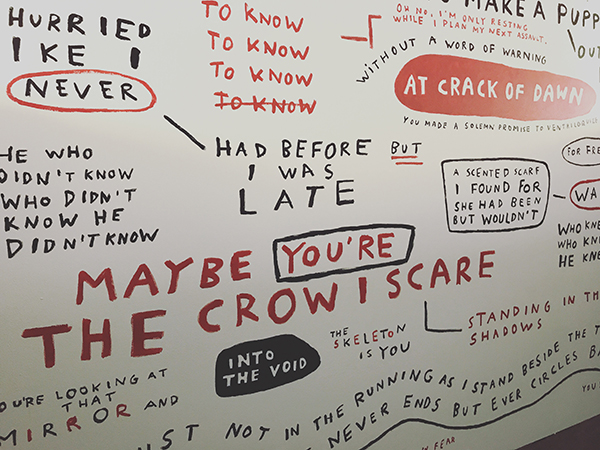 HURRIED
IKE I
NEVER
TO KNOW
TO KNOW
TO KNOW
TO KNOW
MAKE A PUPP
OH NO, I'M ONLY RESTING
WHILE I PLAN MY NEXT ASSAULT.
OU
WITHOUT A WORD OF WARNING
AT CRACK OF DAWN
YOU MADE A SOLEMN PROMISE TO VENTRILOQUISE
HAD BEFORE BUT
I WAS
LATE
HE WHO
DIDN'T KNOW
WHO DIDN'T
KNOW HE
DIDN'T KNOW
A SCENTED SCARF
I FOUND FOR
SHE HAD BEEN
BUT WOULDN'T
FOR FRE
WA
WHO KNE
WHO KN
HE KNE
MAYBE YOU'RE
THE CROW I SCARE
STANDING IN TH
SHADOWS
INTO
THE VOID
THE
SKELETON
IS YOU
OU'RE LOOKING AT
THAT
MIRROR AND
UST NOT IN THE RUNNING AS I STAND BESIDE THE T
NEVER ENDS BUT EVER CIRCLES BA
YOU
FEAR